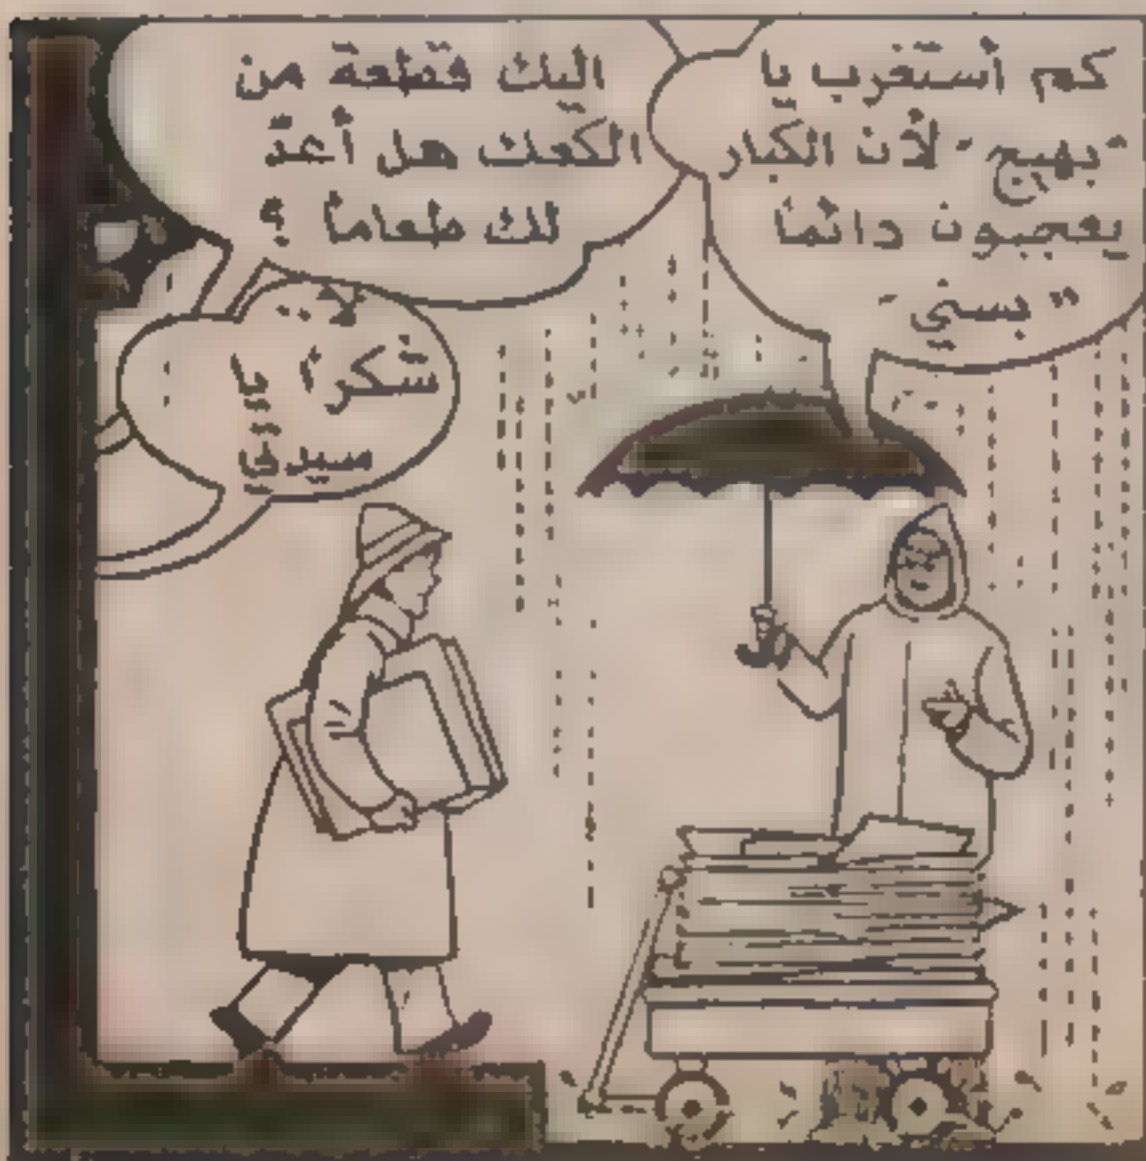 كم أستغرب يا
"بهيج" لأن الكبار
يعجبون دائماً
"بسني"
اليك قطعة من
الكعك هل أعدّ
لك طعاماً ؟
لا ..
شكراً يا
سيدتي